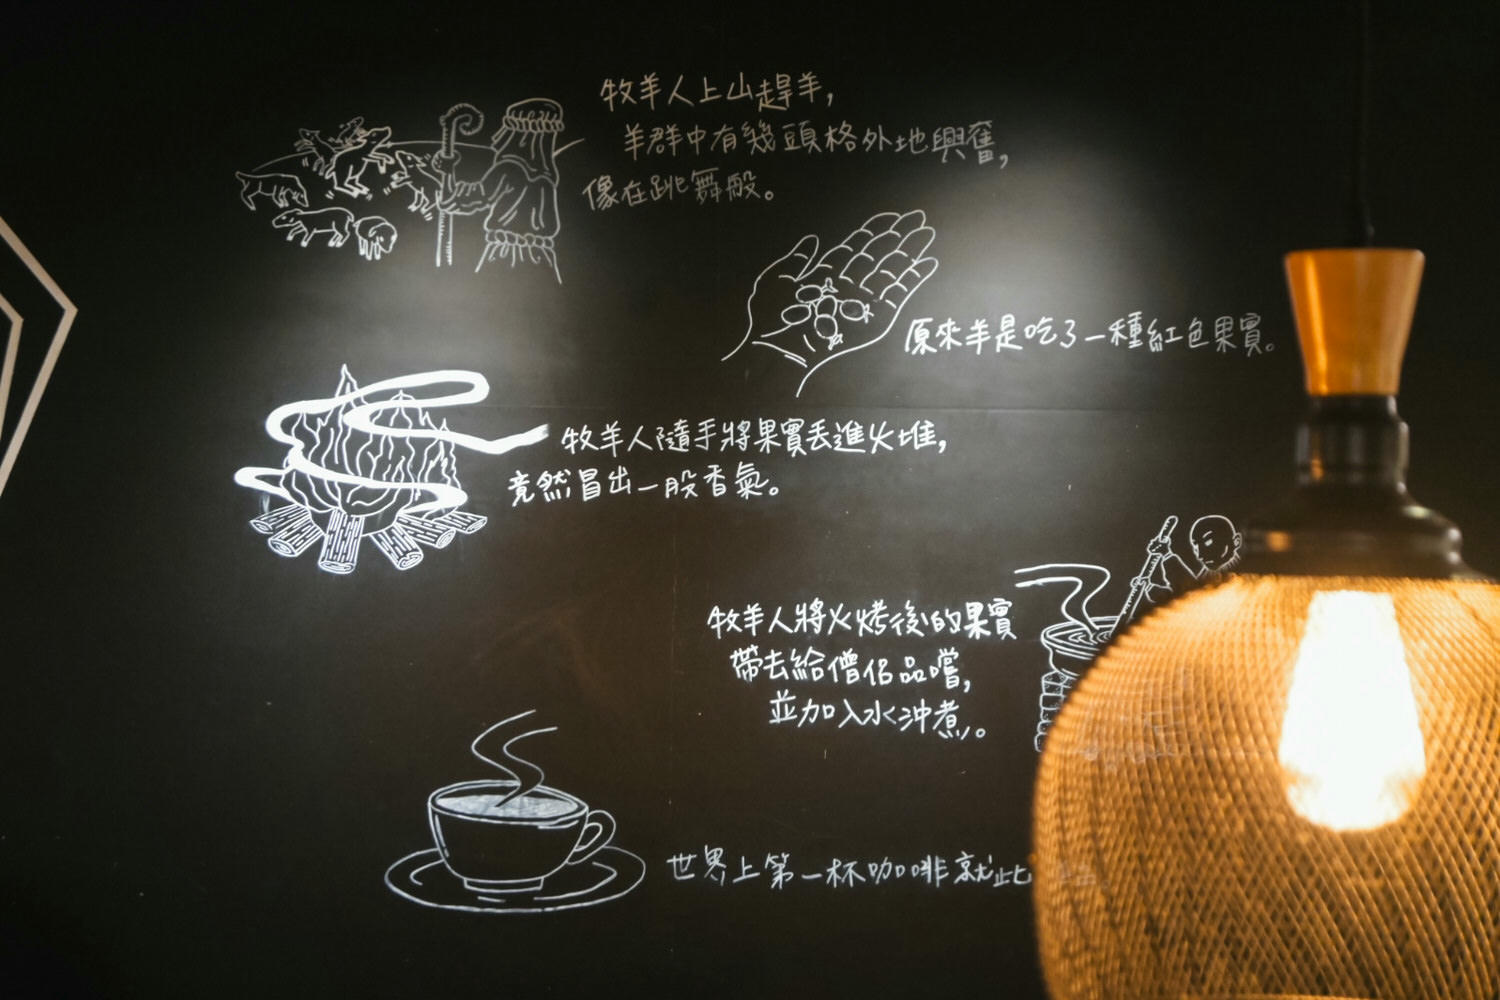 牧羊人上山趕羊，
羊群中有幾頭格外地興奮，
像在跳舞般。
原來羊是吃了一種紅色果實。
牧羊人隨手將果實丟進火堆，
竟然冒出一股香氣。
牧羊人將火烤後的果實
帶去給僧侶品嚐，
並加入水沖煮。
世界上第一杯咖啡就此